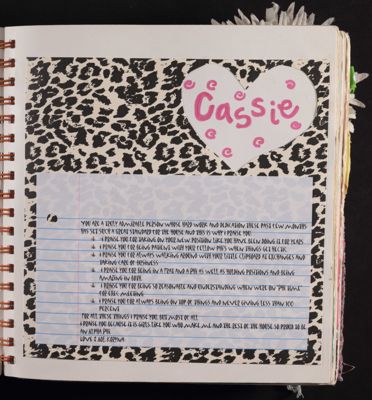 Cassie
YOU ARE A TRULY ADMIRABLE PERSON WHOSE HARD WORK AND DEDICATION THESE PAST FEW MONTHS
HAS SET SUCH A GREAT STANDARD FOR THE HOUSE AND THIS IS WHY I PRAISE YOU.
I PRAISE YOU FOR TAKING ON YOUR NEW POSITION LIKE YOU HAVE BEEN DOING IT FOR YEARS
I PRAISE YOU FOR BEING PATIENT WITH YOUR FELLOW PHI'S WHEN THINGS GET HECTIC
I PRAISE YOU FOR ALWAYS WALKING AROUND WITH YOUR LITTLE CLIPBOARD AT EXCHANGES AND
TAKING CARE OF BUSINESS
I PRAISE YOU FOR BEING IN A TRIO AND A PHI AS WELL AS HOLDING POSITIONS AND BEING
AMAZING IN BOTH
I PRAISE YOU FOR BEING SO REASONABLE AND UNDERSTANDING WHEN WE'RE ON "PHI TIME"
FOR EXEC MEETING
I PRAISE YOU FOR ALWAYS BEING ON TOP OF THINGS AND NEVER GIVING LESS THAN 100
PERCENT
FOR ALL THESE THINGS I PRAISE YOU, BUT MOST OF ALL
I PRAISE YOU BECAUSE IT IS GIRLS LIKE YOU WHO MAKE ME AND THE REST OF THE HOUSE SO PROUD TO BE
AN ALPHA PHI.
LOVE & AOE,